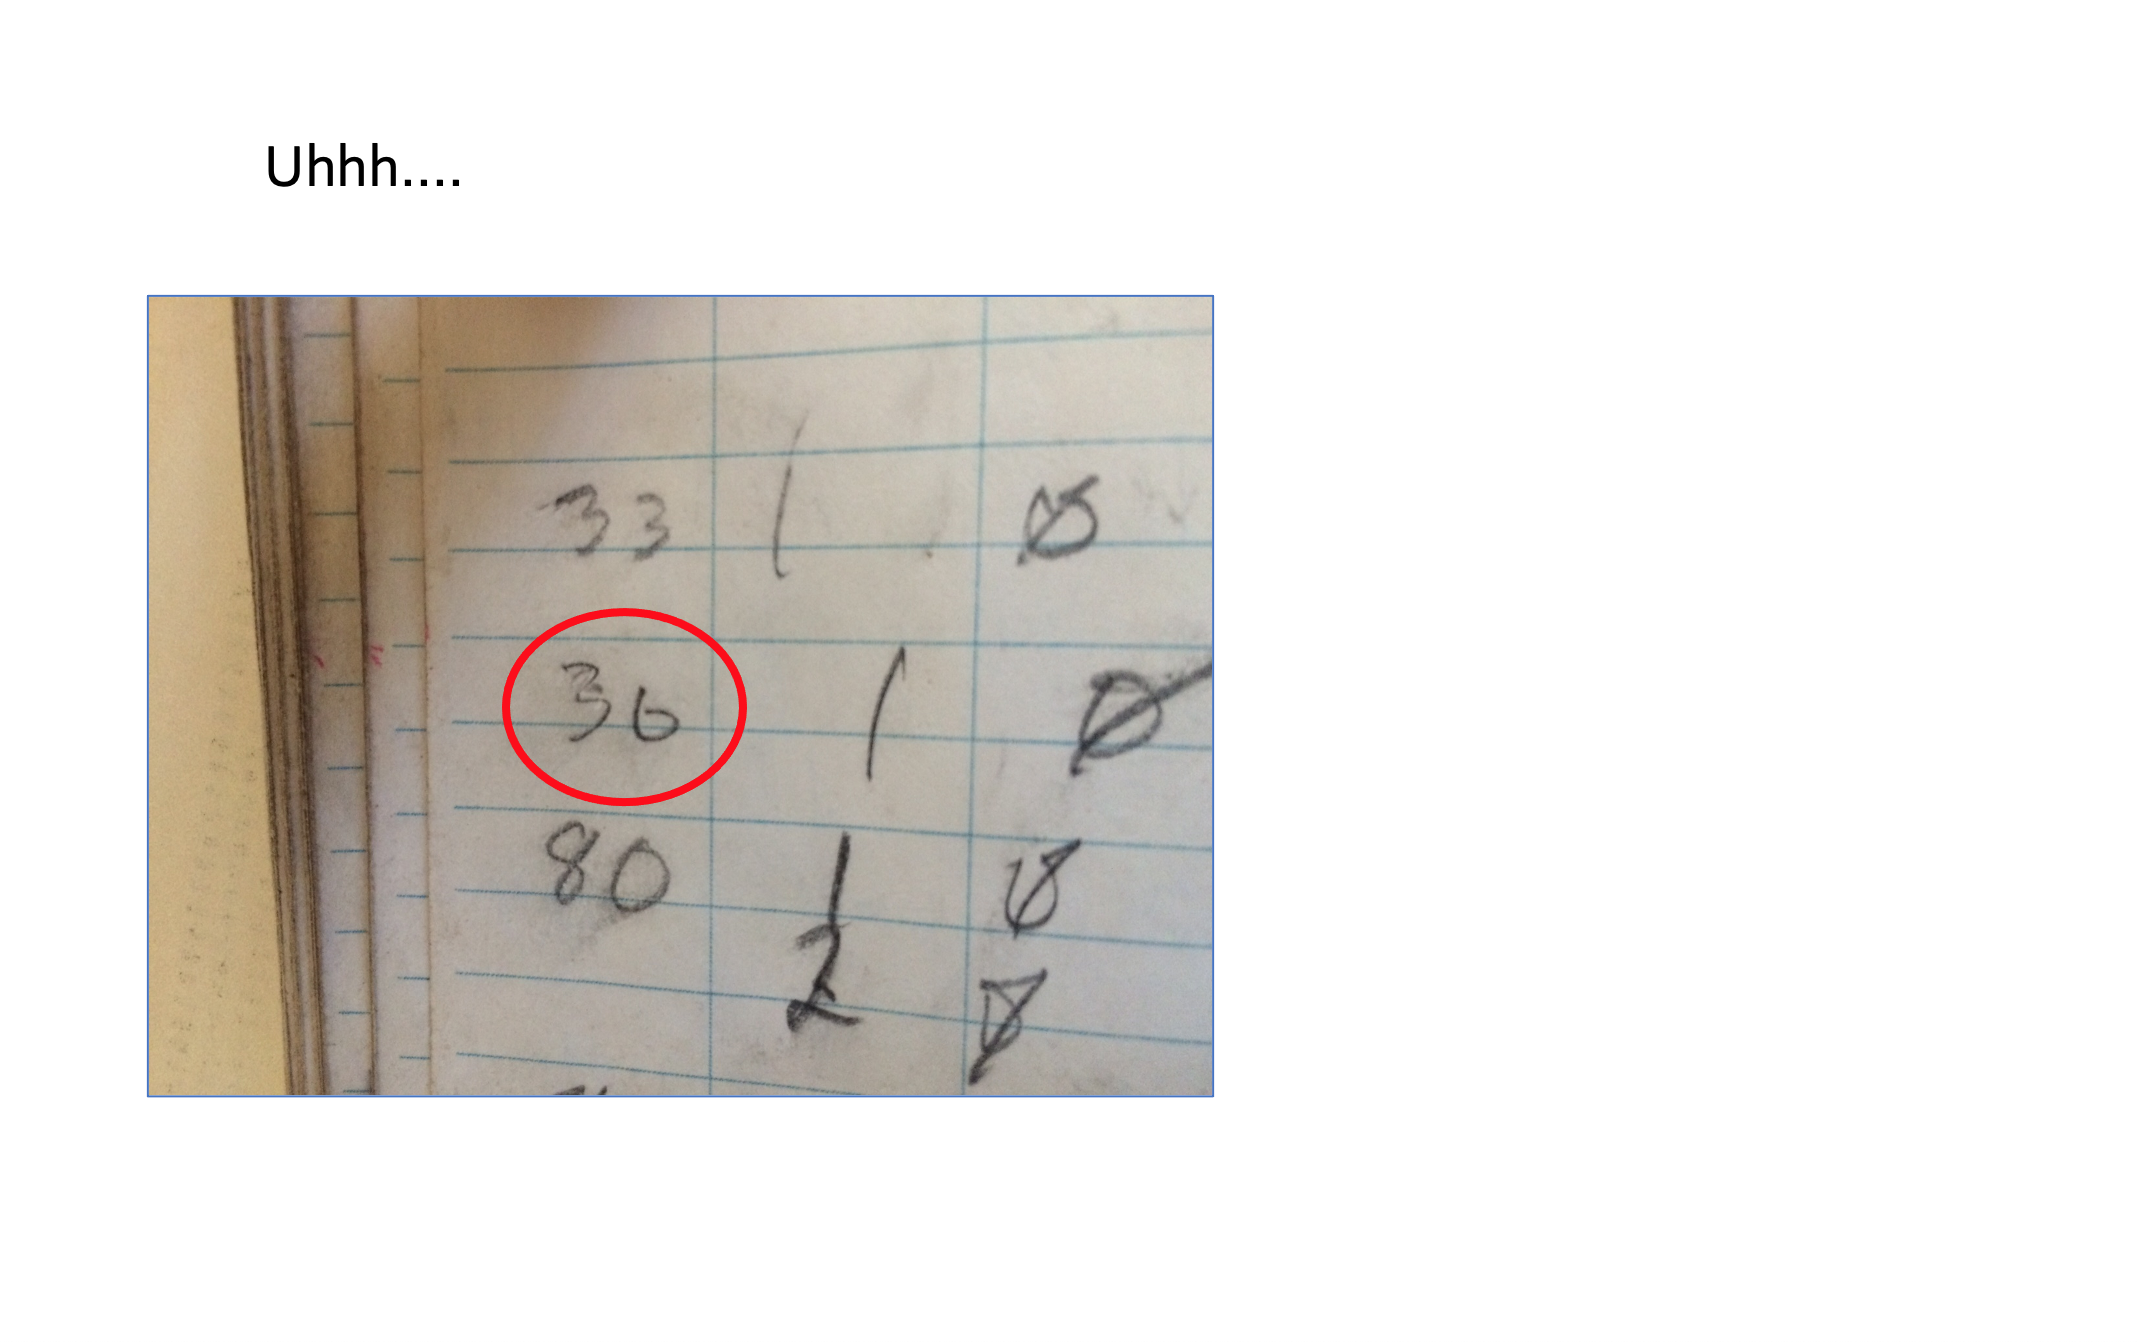 Uhhh....
33 1 Ø
36 1 Ø
80 1 Ø
2 Ø